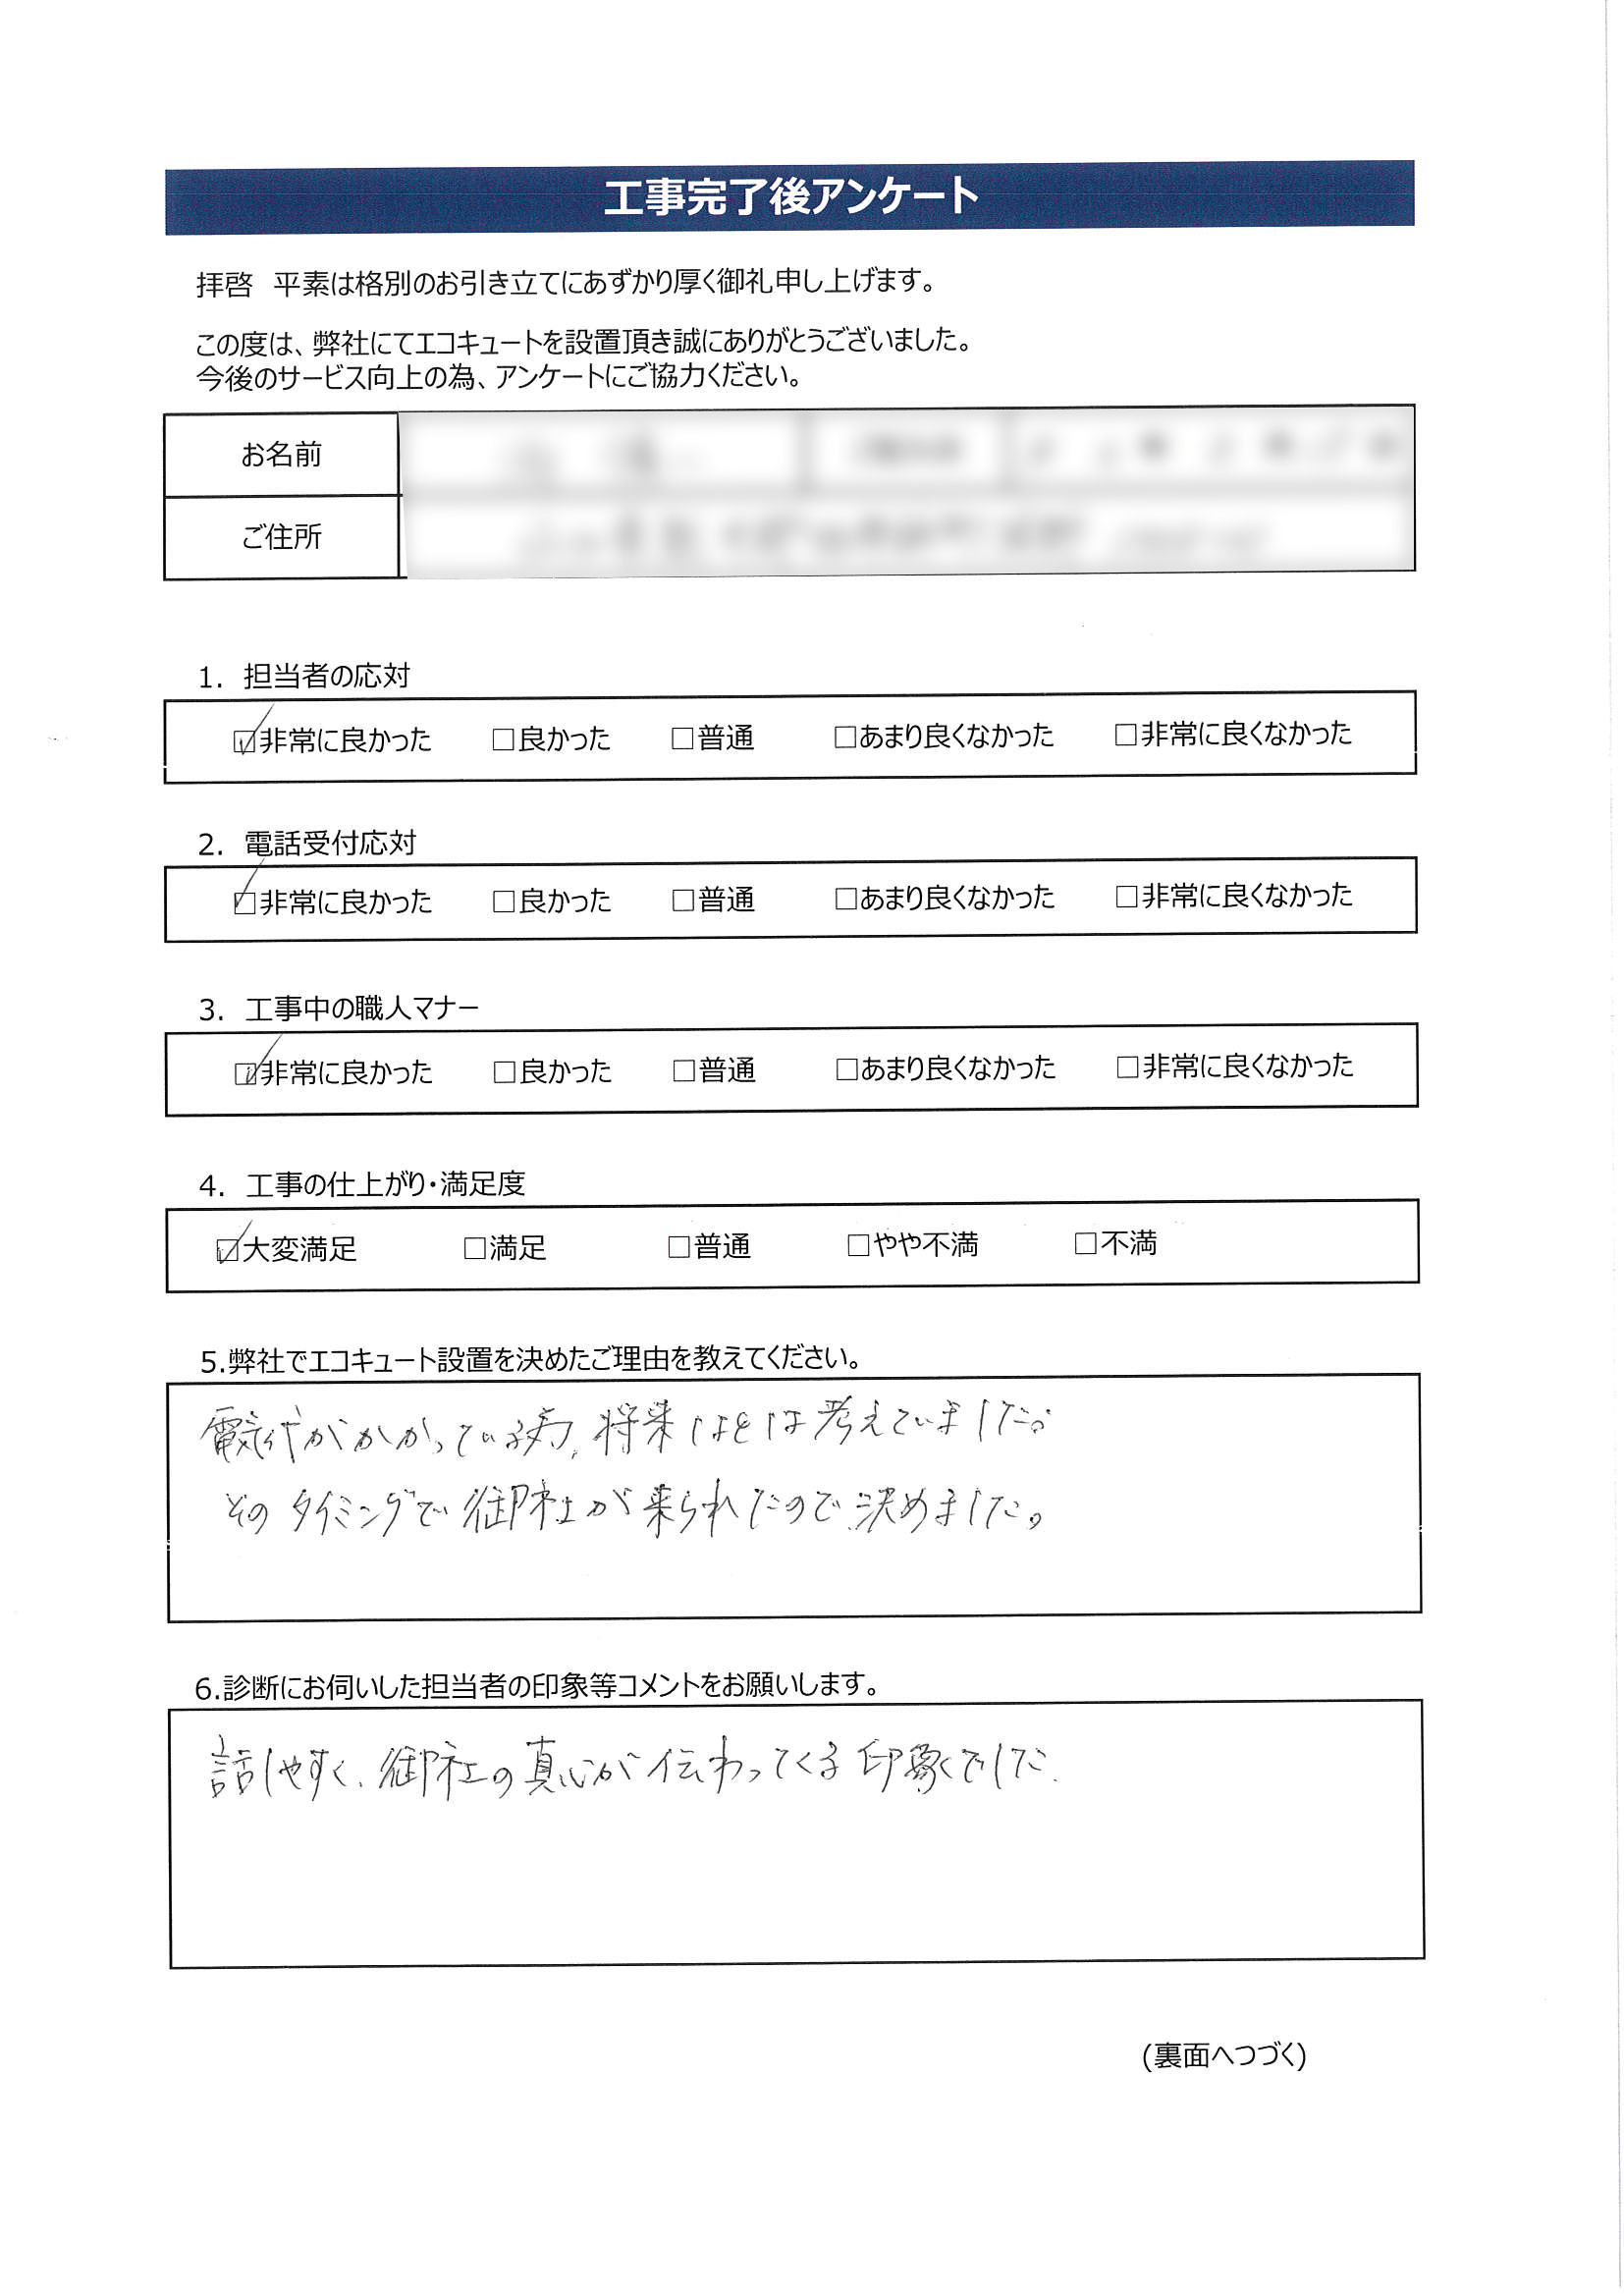 工事完了後アンケート
拝啓　平素は格別のお引き立てにあずかり厚く御礼申し上げます。
この度は、弊社にてエコキュートを設置頂き誠にありがとうございました。
今後のサービス向上の為、アンケートにご協力ください。
お名前
ご住所
1.　担当者の応対
☑非常に良かった　□良かった　□普通　□あまり良くなかった　□非常に良くなかった
2.　電話受付応対
☑非常に良かった　□良かった　□普通　□あまり良くなかった　□非常に良くなかった
3.　工事中の職人マナー
☑非常に良かった　□良かった　□普通　□あまり良くなかった　□非常に良くなかった
4.　工事の仕上がり・満足度
☑大変満足　□満足　□普通　□やや不満　□不満
5.弊社でエコキュート設置を決めたご理由を教えてください。
電気代がかかっている為、将来はとは考えていました。
そのタイミングで御社が来られたので決めました。
6.診断にお伺いした担当者の印象等コメントをお願いします。
話しやすく、御社の真心が伝わってくる印象でした.
(裏面へつづく)